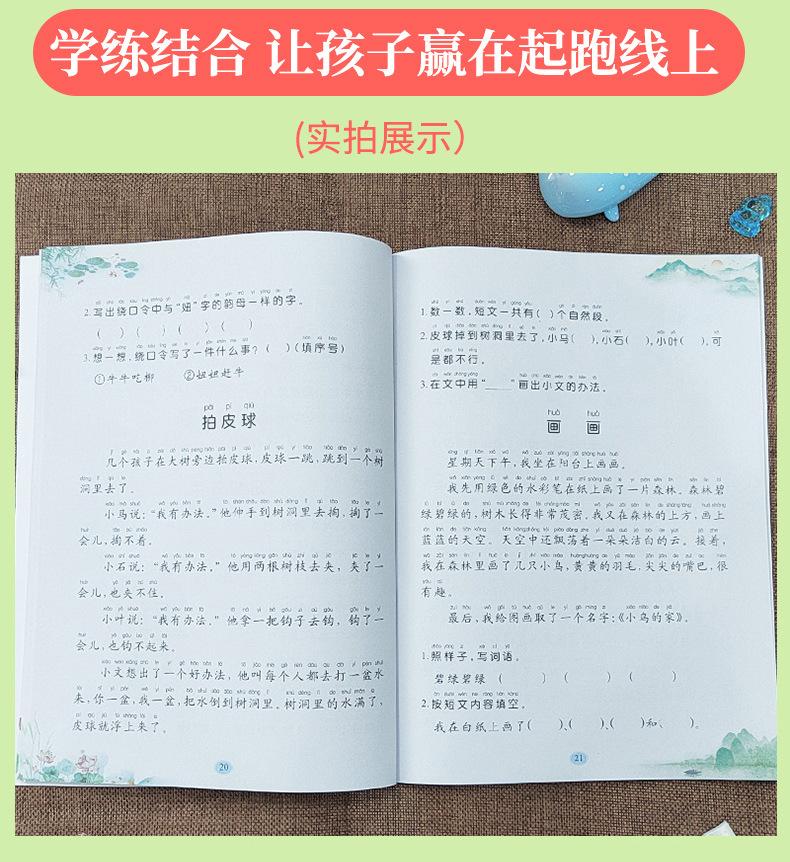 学练结合 让孩子赢在起跑线上
(实拍展示)
2.写出绕口令中与“妞”字的韵母一样的字。
( ) ( ) ( ) ( )
3.想一想,绕口令写了一件什么事?( )(填序号)
①牛牛吃柳 ②妞妞赶牛
pāi pí qiú
拍皮球
几个孩子在大树旁边拍皮球,皮球一跳,跳到一个树
洞里去了。
小马说:“我有办法。”他伸手到树洞里去掏,掏了一
会儿,掏不着。
小石说:“我有办法。”他用两根树枝去夹,夹了一
会儿,也夹不住。
小叶说:“我有办法。”他拿一把钩子去钩,钩了一
会儿,也钩不起来。
小文想出了一个好办法,他叫每个人都去打一盆水
来,你一盆,我一盆,把水倒到树洞里。树洞里的水满了,
皮球就浮上来了。
20
1.数一数,短文一共有( )个自然段。
2.皮球掉到树洞里去了,小马( ),小石( ),小叶( ),可
是都不行。
3.在文中用“____”画出小文的办法。
huà huà
画 画
星期天下午,我坐在阳台上画画。
我先用绿色的水彩笔在纸上画了一片森林。森林碧
绿碧绿的,树木长得非常茂密。我又在森林的上方,画上
蓝蓝的天空。天空中还飘荡着一朵朵洁白的云。接着,
我在森林里画了几只小鸟,黄黄的羽毛,尖尖的嘴巴,很
有趣。
最后,我给图画取了一个名字:《小鸟的家》。
1.照样子,写词语。
碧绿碧绿 ( ) ( ) ( )
2.按短文内容填空。
我在白纸上画了( )、( )、( )和( )。
21